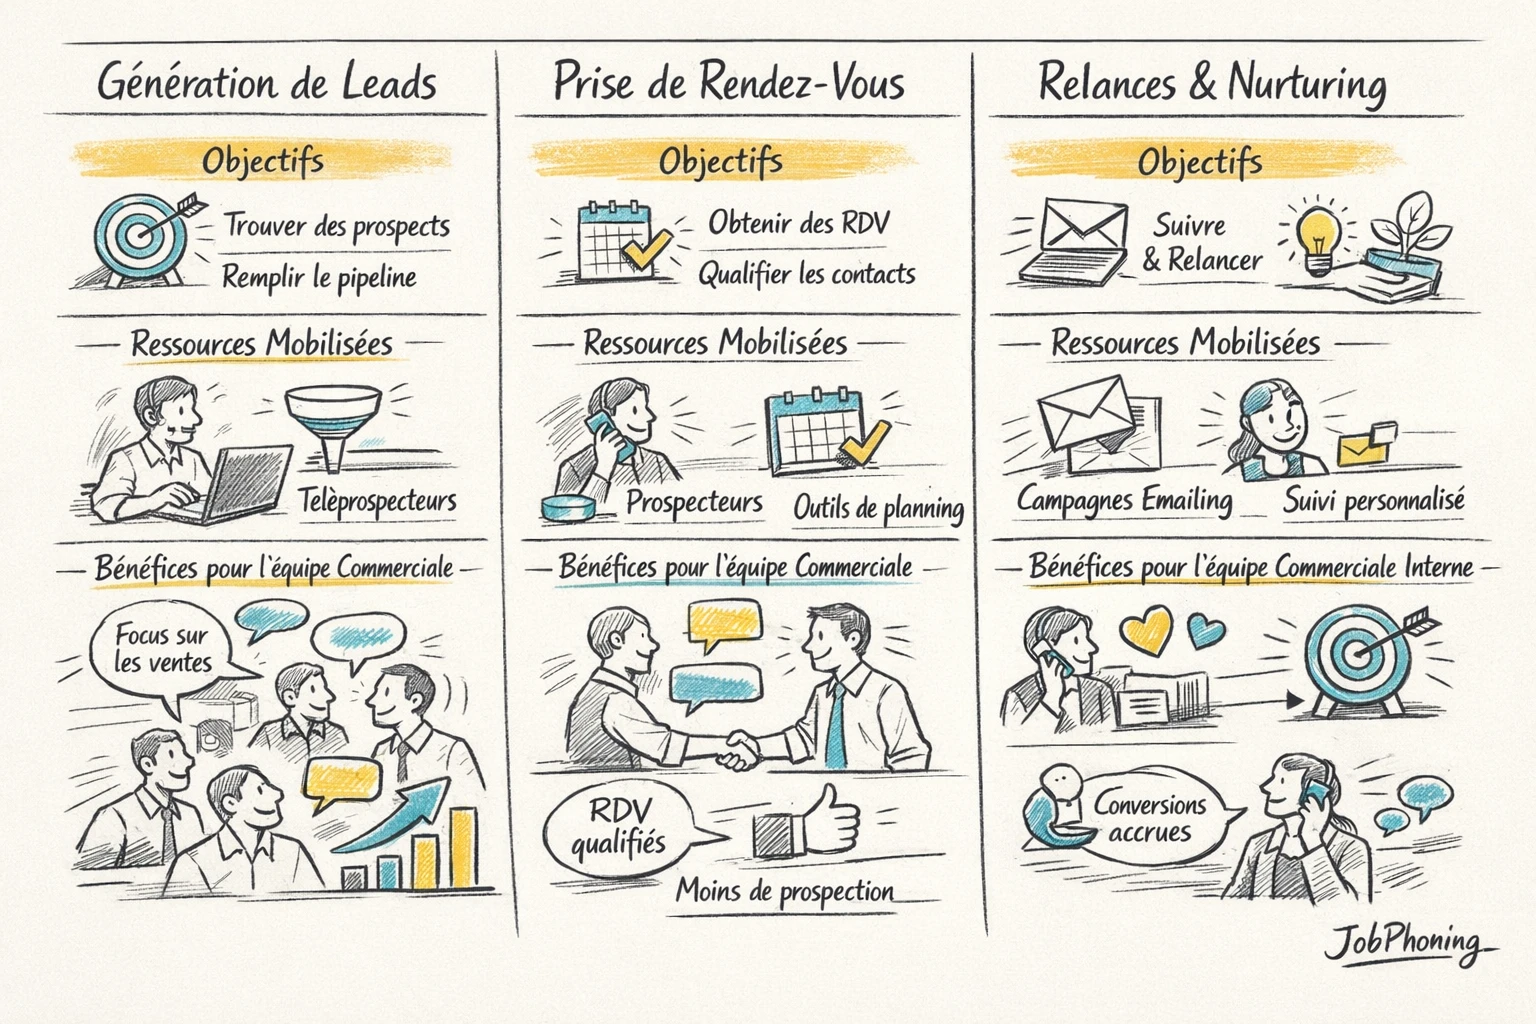 Génération de Leads
Objectifs
Trouver des prospects
Remplir le pipeline
Ressources Mobilisées
Telèprospecteurs
Bénéfices pour l'équipe Commerciale
Focus sur
les ventes
Prise de Rendez-Vous
Objectifs
Obtenir des RDV
Qualifier les contacts
Ressources Mobilisées
Prospecteurs
Outils de planning
Bénéfices pour l'équipe Commerciale
RDV
qualifiés
Moins de prospection
Relances & Nurturing
Objectifs
Suivre
& Relancer
Ressources Mobilisées
Campagnes Emailing
Suivi personnalisé
Bénéfices pour l'équipe Commerciale Interne
Conversions
accrues
JobPhoning